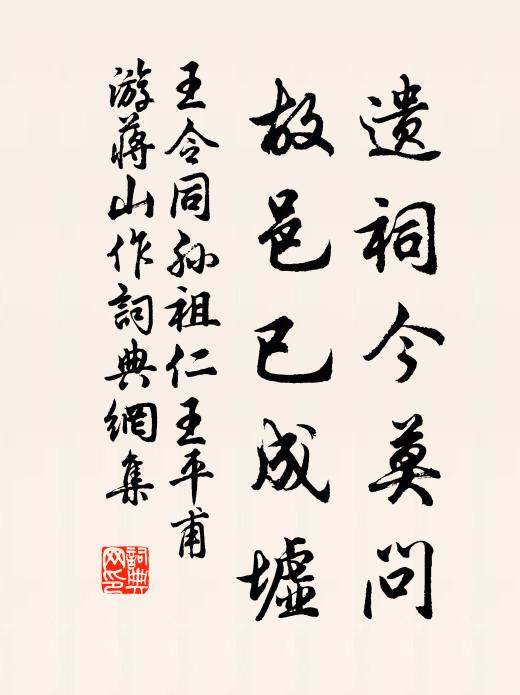 遗祠今莫问
故邑已成墟
王令同孙祖仁王平甫
游蒋山作詞典網集
詞典网印